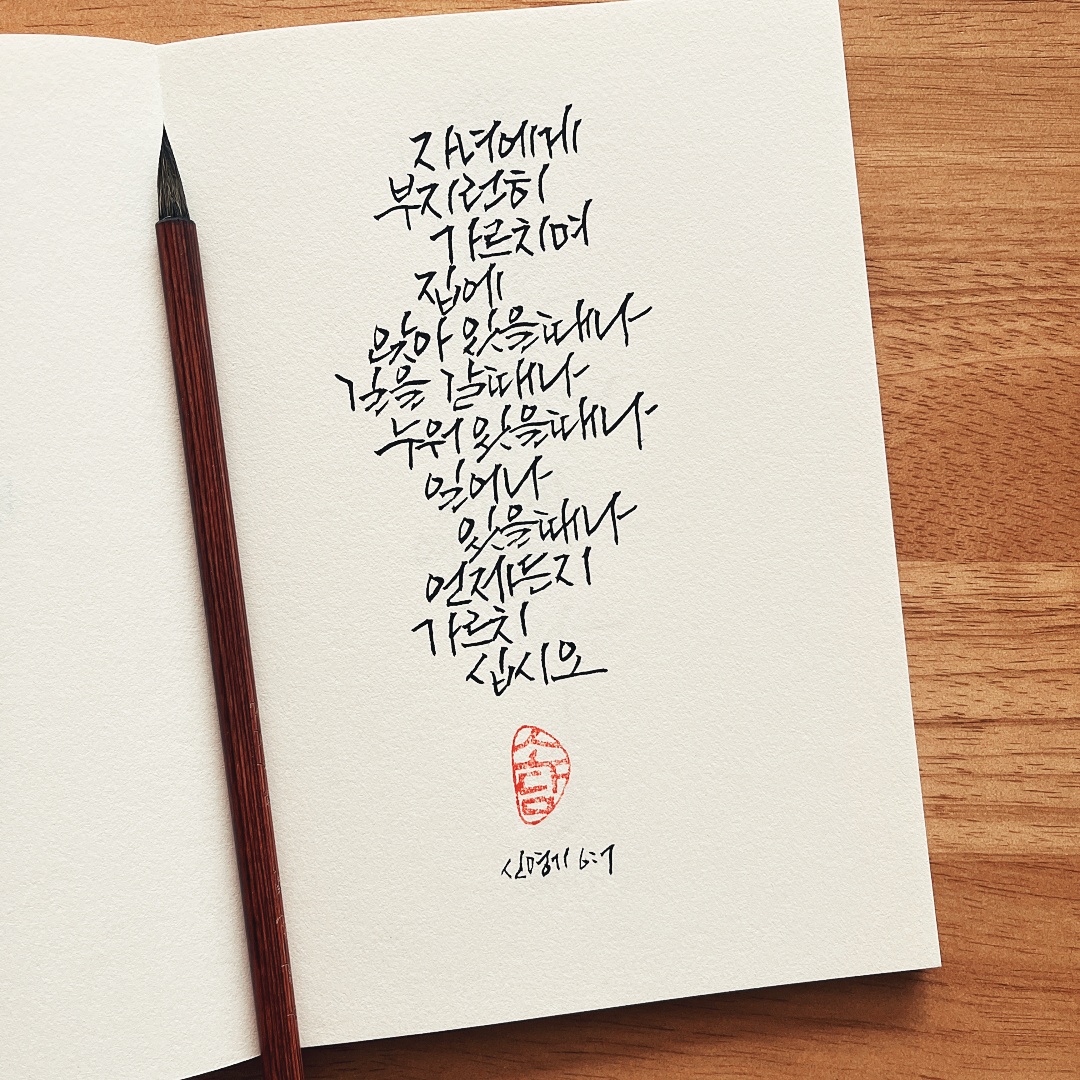 자녀에게
부지런히
가르치며
집에
앉아 있을때나
길을 갈때나
누워 있을때나
일어나
있을때나
언제든지
가르치
십시오
신명기 6:7